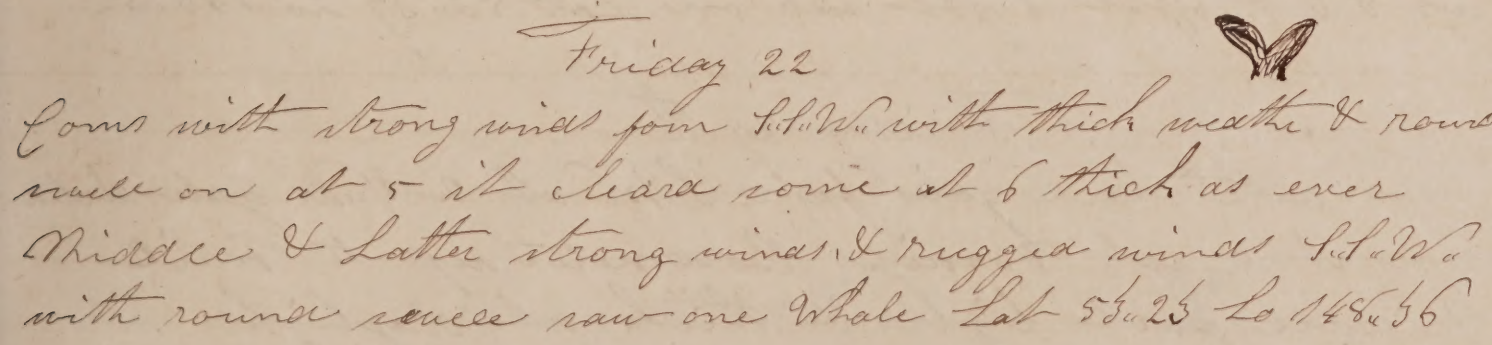 Friday 22
Coms with strong winds fom S.S.W. with thick weathe & round
swell on at 5 it cleard some at 6 thick as ever
Middle & Latter strong winds & rugged winds S.S.W.
with round swell saw one Whale Lat Lo